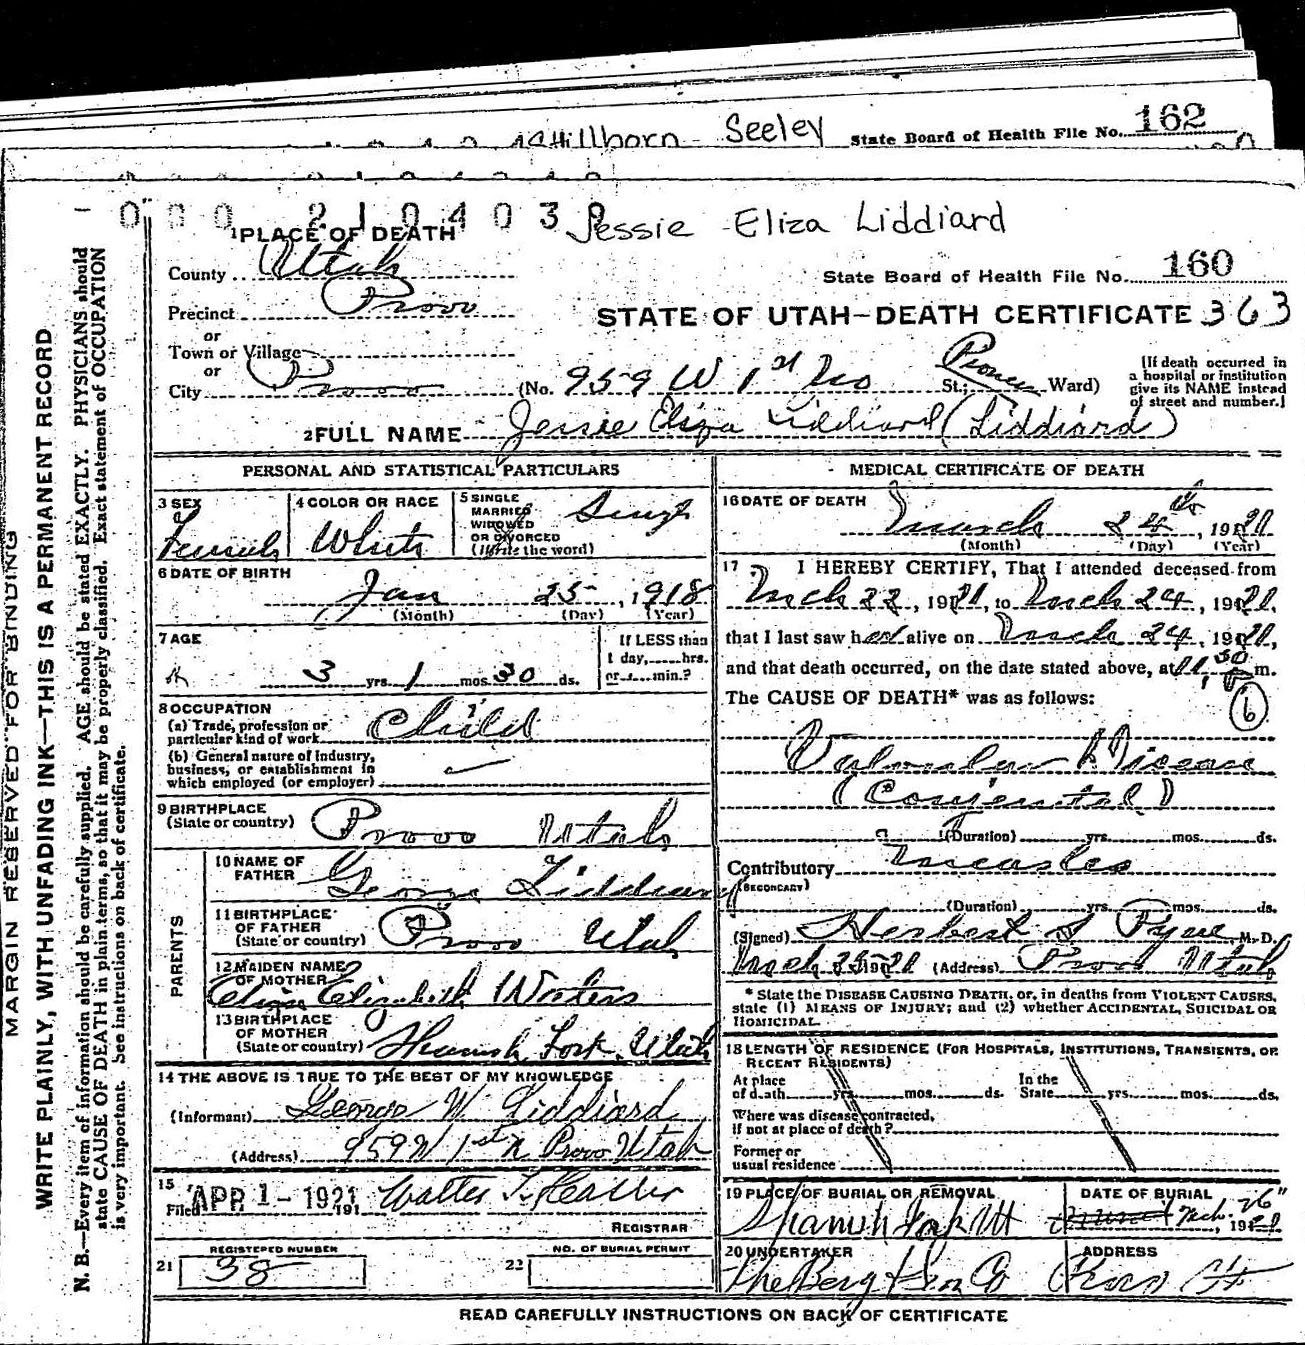 Hillborn Seeley State Board of Health File No. 162
0 0 0 2 1 0 4 0 3
Jessie Eliza Liddiard
1 PLACE OF DEATH
County Utah
State Board of Health File No. 160
Precinct Provo
STATE OF UTAH—DEATH CERTIFICATE 363
or
Town or Village
or
City Provo (No. 959 W 1st No St.; Pioneer Ward)
[If death occurred in
a hospital or institution
give its NAME instead
of street and number.]
2 FULL NAME Jessie Eliza Liddiard (Liddiard)
PERSONAL AND STATISTICAL PARTICULARS
3 SEX Female
4 COLOR OR RACE White
5 SINGLE
MARRIED
WIDOWED
OR DIVORCED
(Write the word)
Single
6 DATE OF BIRTH
Jan 25, 1918
(Month) (Day) (Year)
7 AGE
3 yrs. 1 mos. 30 ds.
If LESS than
1 day, hrs.
or min.?
8 OCCUPATION
(a) Trade, profession or
particular kind of work Child
(b) General nature of Industry,
business, or establishment in
which employed (or employer)
9 BIRTHPLACE
(State or country) Provo Utah
PARENTS
10 NAME OF
FATHER George Liddiard
11 BIRTHPLACE
OF FATHER
(State or country) Provo Utah
12 MAIDEN NAME
OF MOTHER Eliza Elizabeth Waters
13 BIRTHPLACE
OF MOTHER
(State or country) Spanish Fork, Utah
14 THE ABOVE IS TRUE TO THE BEST OF MY KNOWLEDGE
(Informant) George W. Liddiard
(Address) 959 W 1st N Provo Utah
15
Filed APR 1 - 1921 191 Walter T. Hasler
REGISTRAR
REGISTERED NUMBER
21 38
NO. OF BURIAL PERMIT
22
MEDICAL CERTIFICATE OF DEATH
16 DATE OF DEATH
March 24th, 1921
(Month) (Day) (Year)
17 I HEREBY CERTIFY, That I attended deceased from
Mch 22, 1921, to Mch 24, 1921,
that I last saw her alive on Mch 24, 1921,
and that death occurred, on the date stated above, at 11:30 P m.
The CAUSE OF DEATH* was as follows:
6
Valvular Disease
(Conjenital)
(Duration) yrs. mos. ds.
Contributory Measles
(SECONDARY)
(Duration) yrs. mos. ds.
(Signed) Herbert S Pyne, M. D.
Mch 25 1921 (Address) Provo Utah
* State the DISEASE CAUSING DEATH, or, in deaths from VIOLENT CAUSES,
state (1) MEANS OF INJURY; and (2) whether ACCIDENTAL, SUICIDAL OR
HOMICIDAL.
18 LENGTH OF RESIDENCE (FOR HOSPITALS, INSTITUTIONS, TRANSIENTS, OR
RECENT RESIDENTS)
At place
of death yrs. mos. ds.
In the
State yrs. mos. ds.
Where was disease contracted,
if not at place of death?
Former or
usual residence
19 PLACE OF BURIAL OR REMOVAL
Spanish Fork Ut
DATE OF BURIAL
Mch. 26", 1921
20 UNDERTAKER
The Berg & Son Co
ADDRESS
Provo Ut
READ CAREFULLY INSTRUCTIONS ON BACK OF CERTIFICATE
MARGIN RESERVED FOR BINDING
WRITE PLAINLY, WITH UNFADING INK—THIS IS A PERMANENT RECORD
N. B.—Every item of information should be carefully supplied. AGE should be stated EXACTLY. PHYSICIANS should
state CAUSE OF DEATH in plain terms, so that it may be properly classified. Exact statement of OCCUPATION
is very important. See instructions on back of certificate.